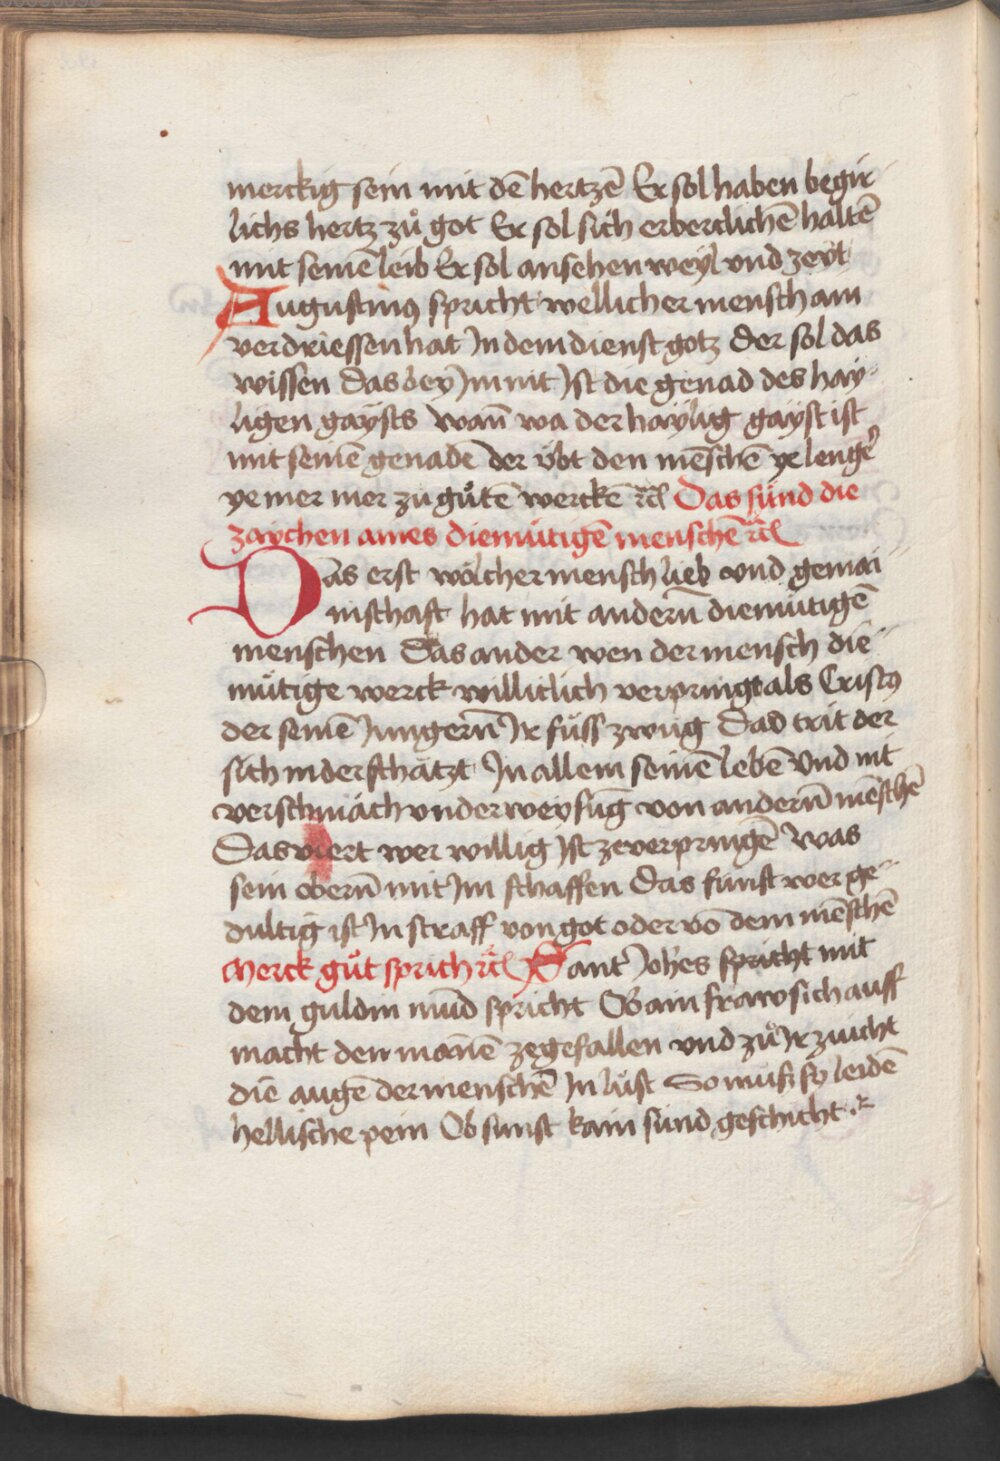 merckig sein mit dē hertzē Er sol haben begir
lichs hertz zů got Er sol sich erbertlichē haltē
mit seinē leib Er sol ansehen weyl vnd zeyt
Augustinus spricht wellicher mensch ain
verdriessen hat In dem dienst gotz Der sol das
wissen das bey Im nit Ist die genad des hay
ligen gaysts wañ wa der haylig gayst ist
mit seinē genadē der v̈bt den mēschē ye lenger
ye mer mer zu gůtē werckē rc̄ Das sind die
zaychen aines diemütigē menschē rc̄
Das erst wölcher mensch lieb vnd gemai
nschaft hat mit andern̄ diemütigē
menschen Das ander wen der mensch die
mütige werck williclich verpringt als Cristus
der seinē Jungern̄ Ir füss zwůg Das trit der
sich nider schätzt In allem seinē lebē vnd nit
verschmäch vnderweysūg von andern̄ mēschē
Das viert wer willig Ist zeverpringē was
sein obern̄ mit Im schaffen Das funft wer ge
dultig ist In straff von got oder vō dem mēschē
Merck gůt sprich rc̄ Sant Johēs spricht mit
dem guldin mūd spricht Ob ain fraw sich auff
macht den manē zegefallen vnd zů Ir zuicht
die augē der menschē In lust So muß sy leidē
hellische pein Ob sunst kain sünd geschicht